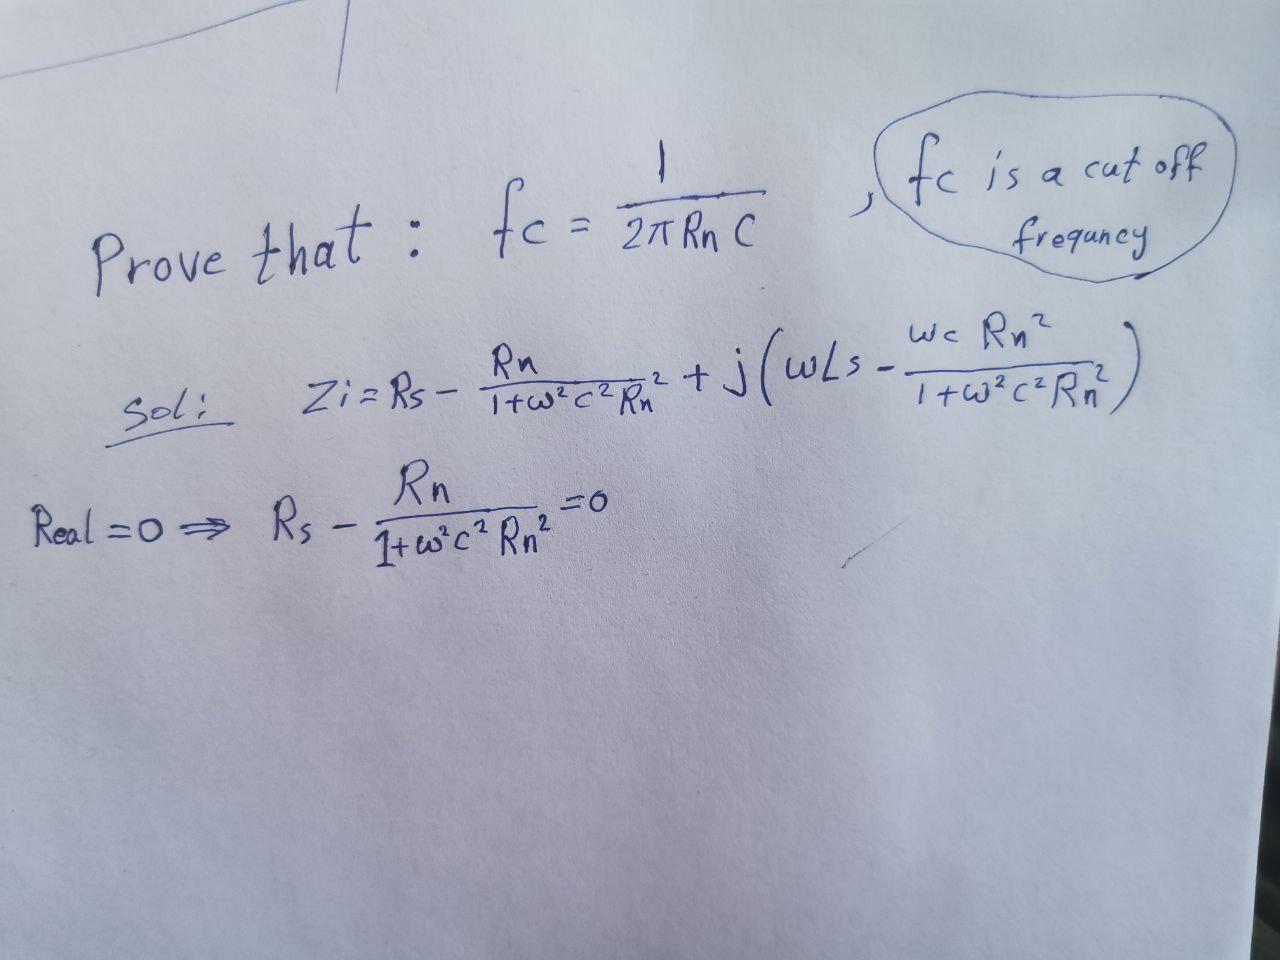 Prove that : fc = 1 / (2π Rn C) , fc is a cut off
frequncy
Sol: Zi = Rs - Rn / (1+ω²c²Rn²) + j(ωLs - ωc Rn² / (1+ω²c²Rn²))
Real = 0 ⇒ Rs - Rn / (1+ω²c²Rn²) = 0